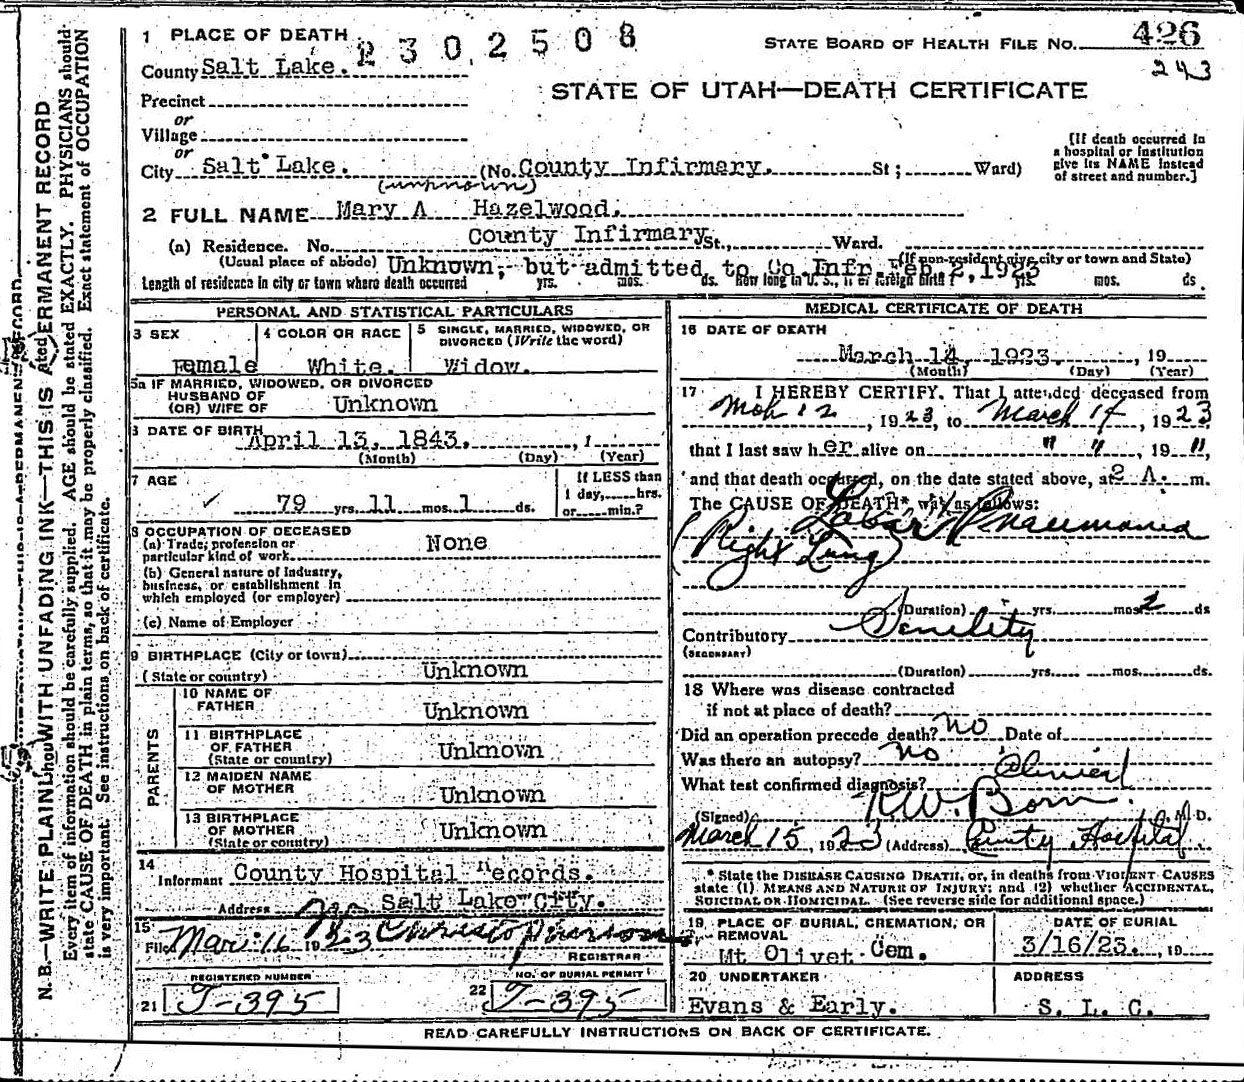 N. B.—WRITE PLAINLY WITH UNFADING INK—THIS IS A PERMANENT RECORD
Every item of information should be carefully supplied. AGE should be stated EXACTLY. PHYSICIANS should
state CAUSE OF DEATH in plain terms, so that it may be properly classified. Exact statement of OCCUPATION
is very important. See instructions on back of certificate.
1 PLACE OF DEATH 2302508
STATE BOARD OF HEALTH FILE No. 426
243
County Salt Lake.
STATE OF UTAH—DEATH CERTIFICATE
Precinct
or
Village
or
City Salt Lake. (No. County Infirmary. St; Ward)
[If death occurred in
a hospital or institution
give its NAME instead
of street and number.]
(unknown)
2 FULL NAME Mary A Hazelwood.
(a) Residence. No. County Infirmary St., Ward.
(Usual place of abode) (If non-resident give city or town and State)
Unknown, but admitted to Co. Infr. Feb. 2, 1923
Length of residence in city or town where death occurred yrs. mos. ds. How long in U. S., if of foreign birth? yrs. mos. ds.
PERSONAL AND STATISTICAL PARTICULARS
3 SEX
Female
4 COLOR OR RACE
White.
5 SINGLE, MARRIED, WIDOWED, OR
DIVORCED (Write the word)
Widow.
5a IF MARRIED, WIDOWED, OR DIVORCED
HUSBAND OF
(OR) WIFE OF Unknown
DATE OF BIRTH April 13, 1843. , 1
(Month) (Day) (Year)
7 AGE
79 yrs. 11 mos. 1 ds.
If LESS than
1 day, hrs.
or min.?
8 OCCUPATION OF DECEASED
(a) Trade, profession or
particular kind of work None
(b) General nature of Industry,
business, or establishment in
which employed (or employer)
(c) Name of Employer
9 BIRTHPLACE (City or town)
(State or country) Unknown
PARENTS
10 NAME OF
FATHER Unknown
11 BIRTHPLACE
OF FATHER
(State or country) Unknown
12 MAIDEN NAME
OF MOTHER Unknown
13 BIRTHPLACE
OF MOTHER
(State or country) Unknown
14
Informant County Hospital Records.
Address Salt Lake City.
15
Filed Mar. 16 1923
REGISTRAR
REGISTERED NUMBER
21 T-395
NO. OF BURIAL PERMIT
22 T-395
MEDICAL CERTIFICATE OF DEATH
16 DATE OF DEATH
March 14 1923. , 19
(Month) (Day) (Year)
17 I HEREBY CERTIFY, That I attended deceased from
Mch 12 , 1923, to March 14 , 1923
that I last saw her alive on " " , 19 ",
and that death occurred, on the date stated above, at 2 A. m.
The CAUSE OF DEATH* was as follows:
Lobar Pneumonia
(Right Lung)
(Duration) yrs. mos. 2 ds
Contributory Senility
(SECONDARY)
(Duration) yrs. mos. ds.
18 Where was disease contracted
if not at place of death?
Did an operation precede death? no Date of
Was there an autopsy? no
What test confirmed diagnosis? Clinical
(Signed) R.W. Born M. D.
March 15, 1923 (Address) County Hospital
* State the DISEASE CAUSING DEATH, or, in deaths from VIOLENT CAUSES
state (1) MEANS AND NATURE OF INJURY; and (2) whether ACCIDENTAL,
SUICIDAL OR HOMICIDAL. (See reverse side for additional space.)
19 PLACE OF BURIAL, CREMATION, OR
REMOVAL
Mt Olivet Cem.
DATE OF BURIAL
3/16/23. , 19
20 UNDERTAKER
Evans & Early.
ADDRESS
S. L. C.
READ CAREFULLY INSTRUCTIONS ON BACK OF CERTIFICATE.